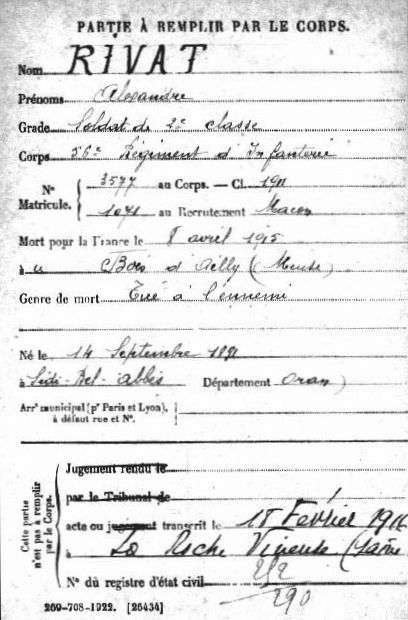 PARTIE À REMPLIR PAR LE CORPS.
Nom RIVAT
Prénoms Alexandre
Grade Soldat de 2e classe
Corps 56e Régiment d'Infanterie
N° Matricule. 3577 au Corps. — Cl. 1911
1071 au Recrutement Macon
Mort pour la France le 8 avril 1915
à u Bois d'Ailly (Meuse)
Genre de mort Tué à l'ennemi
Né le 14 Septembre 1891
à Sidi-Bel-abbès Département Oran
Arrt municipal (pr Paris et Lyon),
à défaut rue et N°.
Cette partie
n'est pas à remplir
par le Corps.
Jugement rendu le
par le Tribunal de
acte ou jugement transcrit le 18 Février 1916
à La Roche Vineuse (Saône
N° du registre d'état civil
212
290
269-708-1922. [26434]